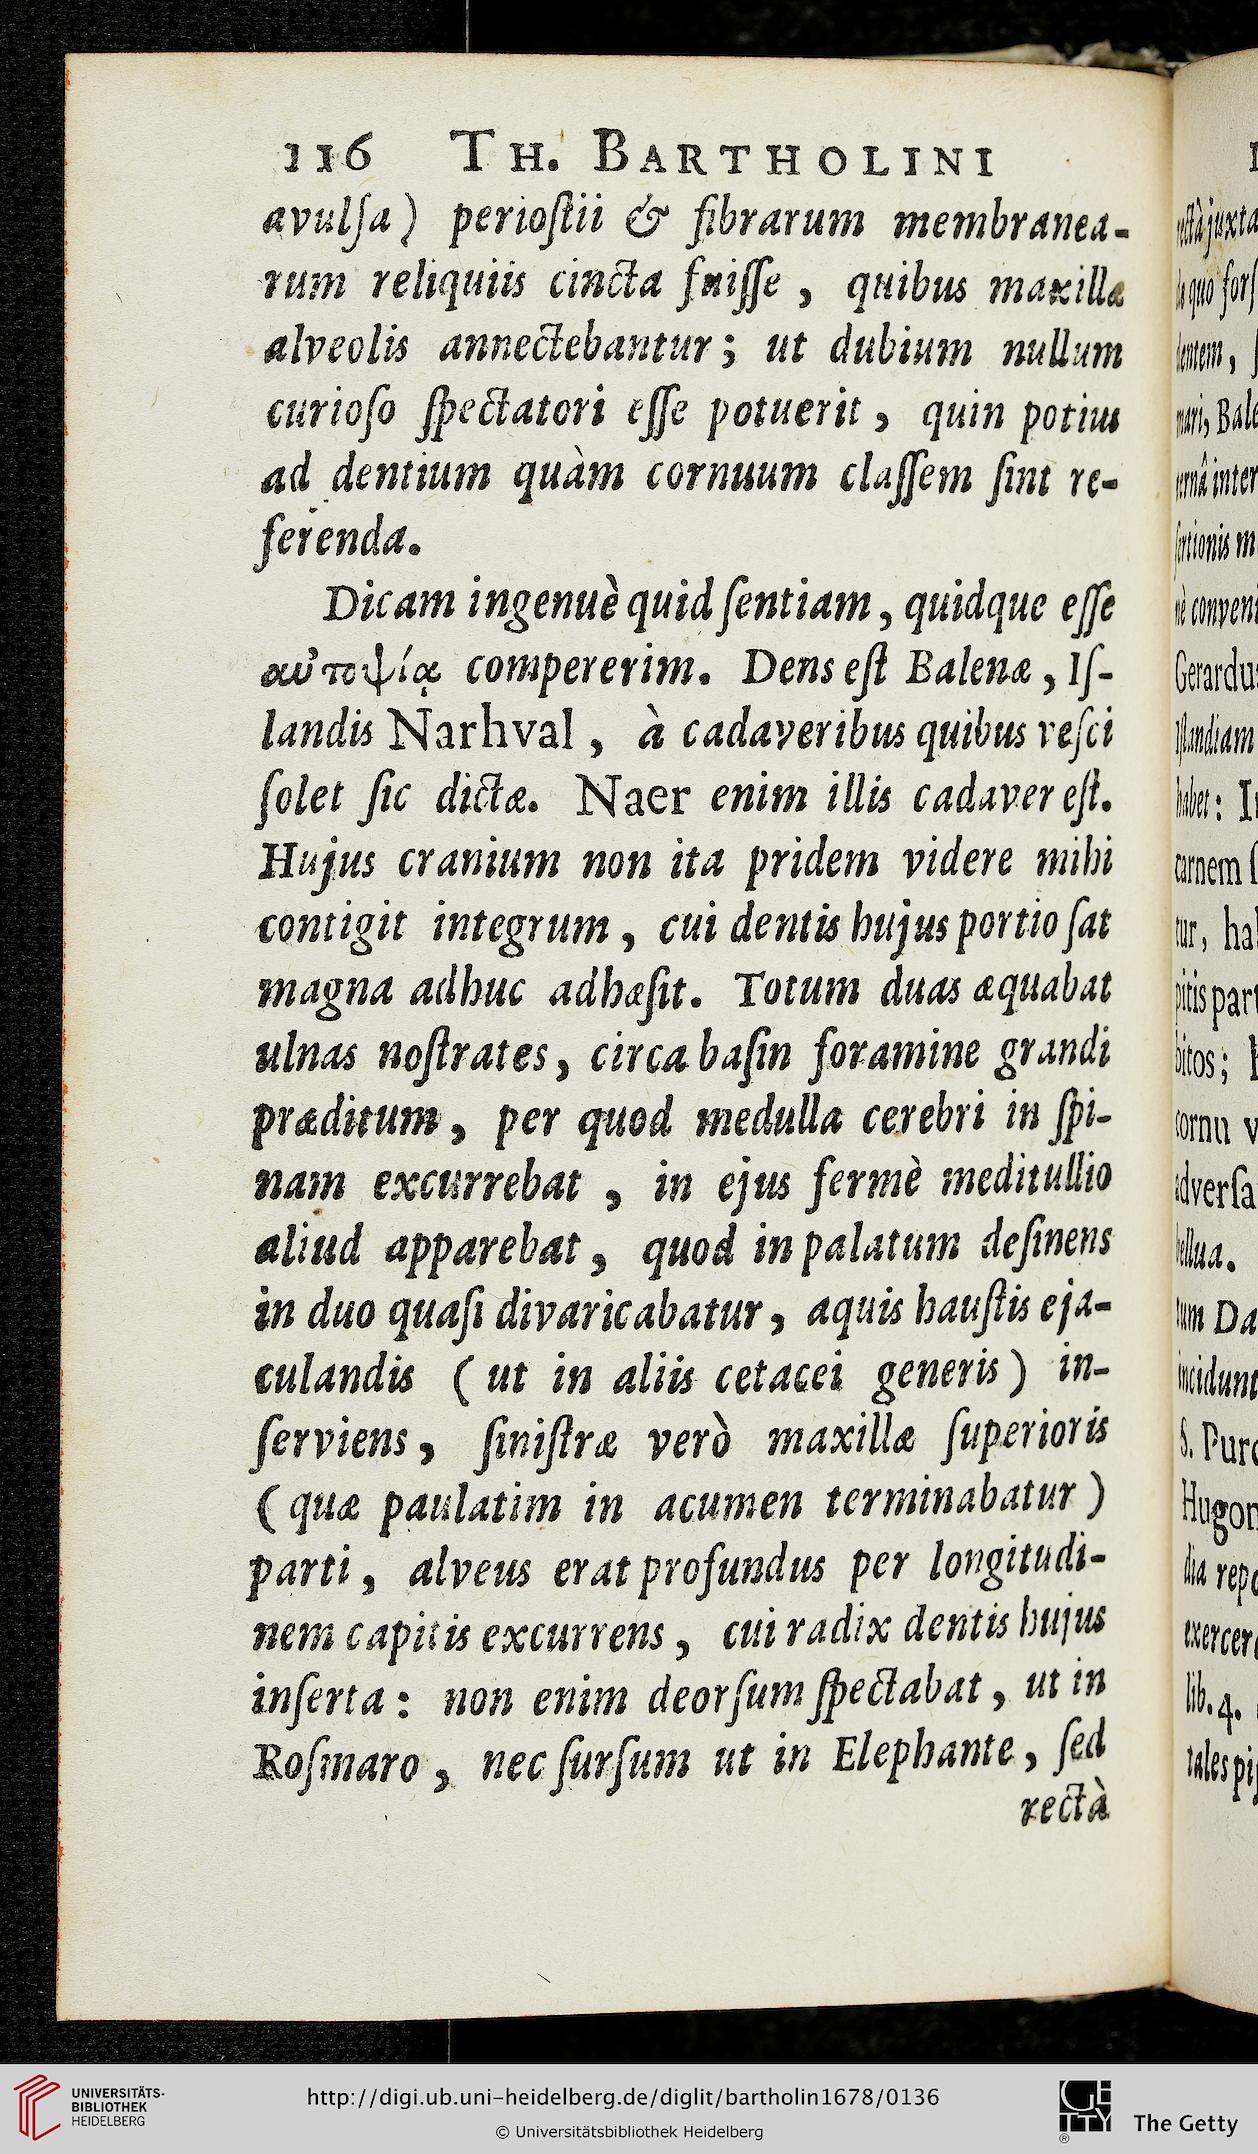 116 TH. BARTHOLINI
avulſa) perioſtii & fibrarum membranea-
rum reliquiis cincta fuiſſe, quibus maxillæ
alveolis annectebantur; ut dubium nullum
curioſo ſpectatori eſſe potuerit, quin potius
ad dentium quàm cornuum claſſem ſint re-
ferenda.
Dicam ingenuè quid ſentiam, quidque eſſe
αὐτοψίᾳ compererim. Dens eſt Balenæ, Iſ-
landis Narhval, à cadaveribus quibus veſci
ſolet ſic dictæ. Naer enim illis cadaver eſt.
Hujus cranium non ita pridem videre mihi
contigit integrum, cui dentis hujus portio ſat
magna adhuc adhæſit. Totum duas æquabat
ulnas noſtrates, circa baſin foramine grandi
præditum, per quod medulla cerebri in ſpi-
nam excurrebat, in ejus fermè meditullio
aliud apparebat, quod in palatum deſinens
in duo quaſi divaricabatur, aquis hauſtis eja-
culandis (ut in aliis cetacei generis) in-
ſerviens, ſiniſtræ verò maxillæ ſuperioris
(quæ paulatim in acumen terminabatur)
parti, alveus erat profundus per longitudi-
nem capitis excurrens, cui radix dentis hujus
inſerta: non enim deorſum ſpectabat, ut in
Roſmaro, nec ſurſum ut in Elephante, ſed
rectà
UNIVERSITÄTS-
BIBLIOTHEK
HEIDELBERG
http://digi.ub.uni-heidelberg.de/diglit/bartholin1678/0136
© Universitätsbibliothek Heidelberg
The Getty